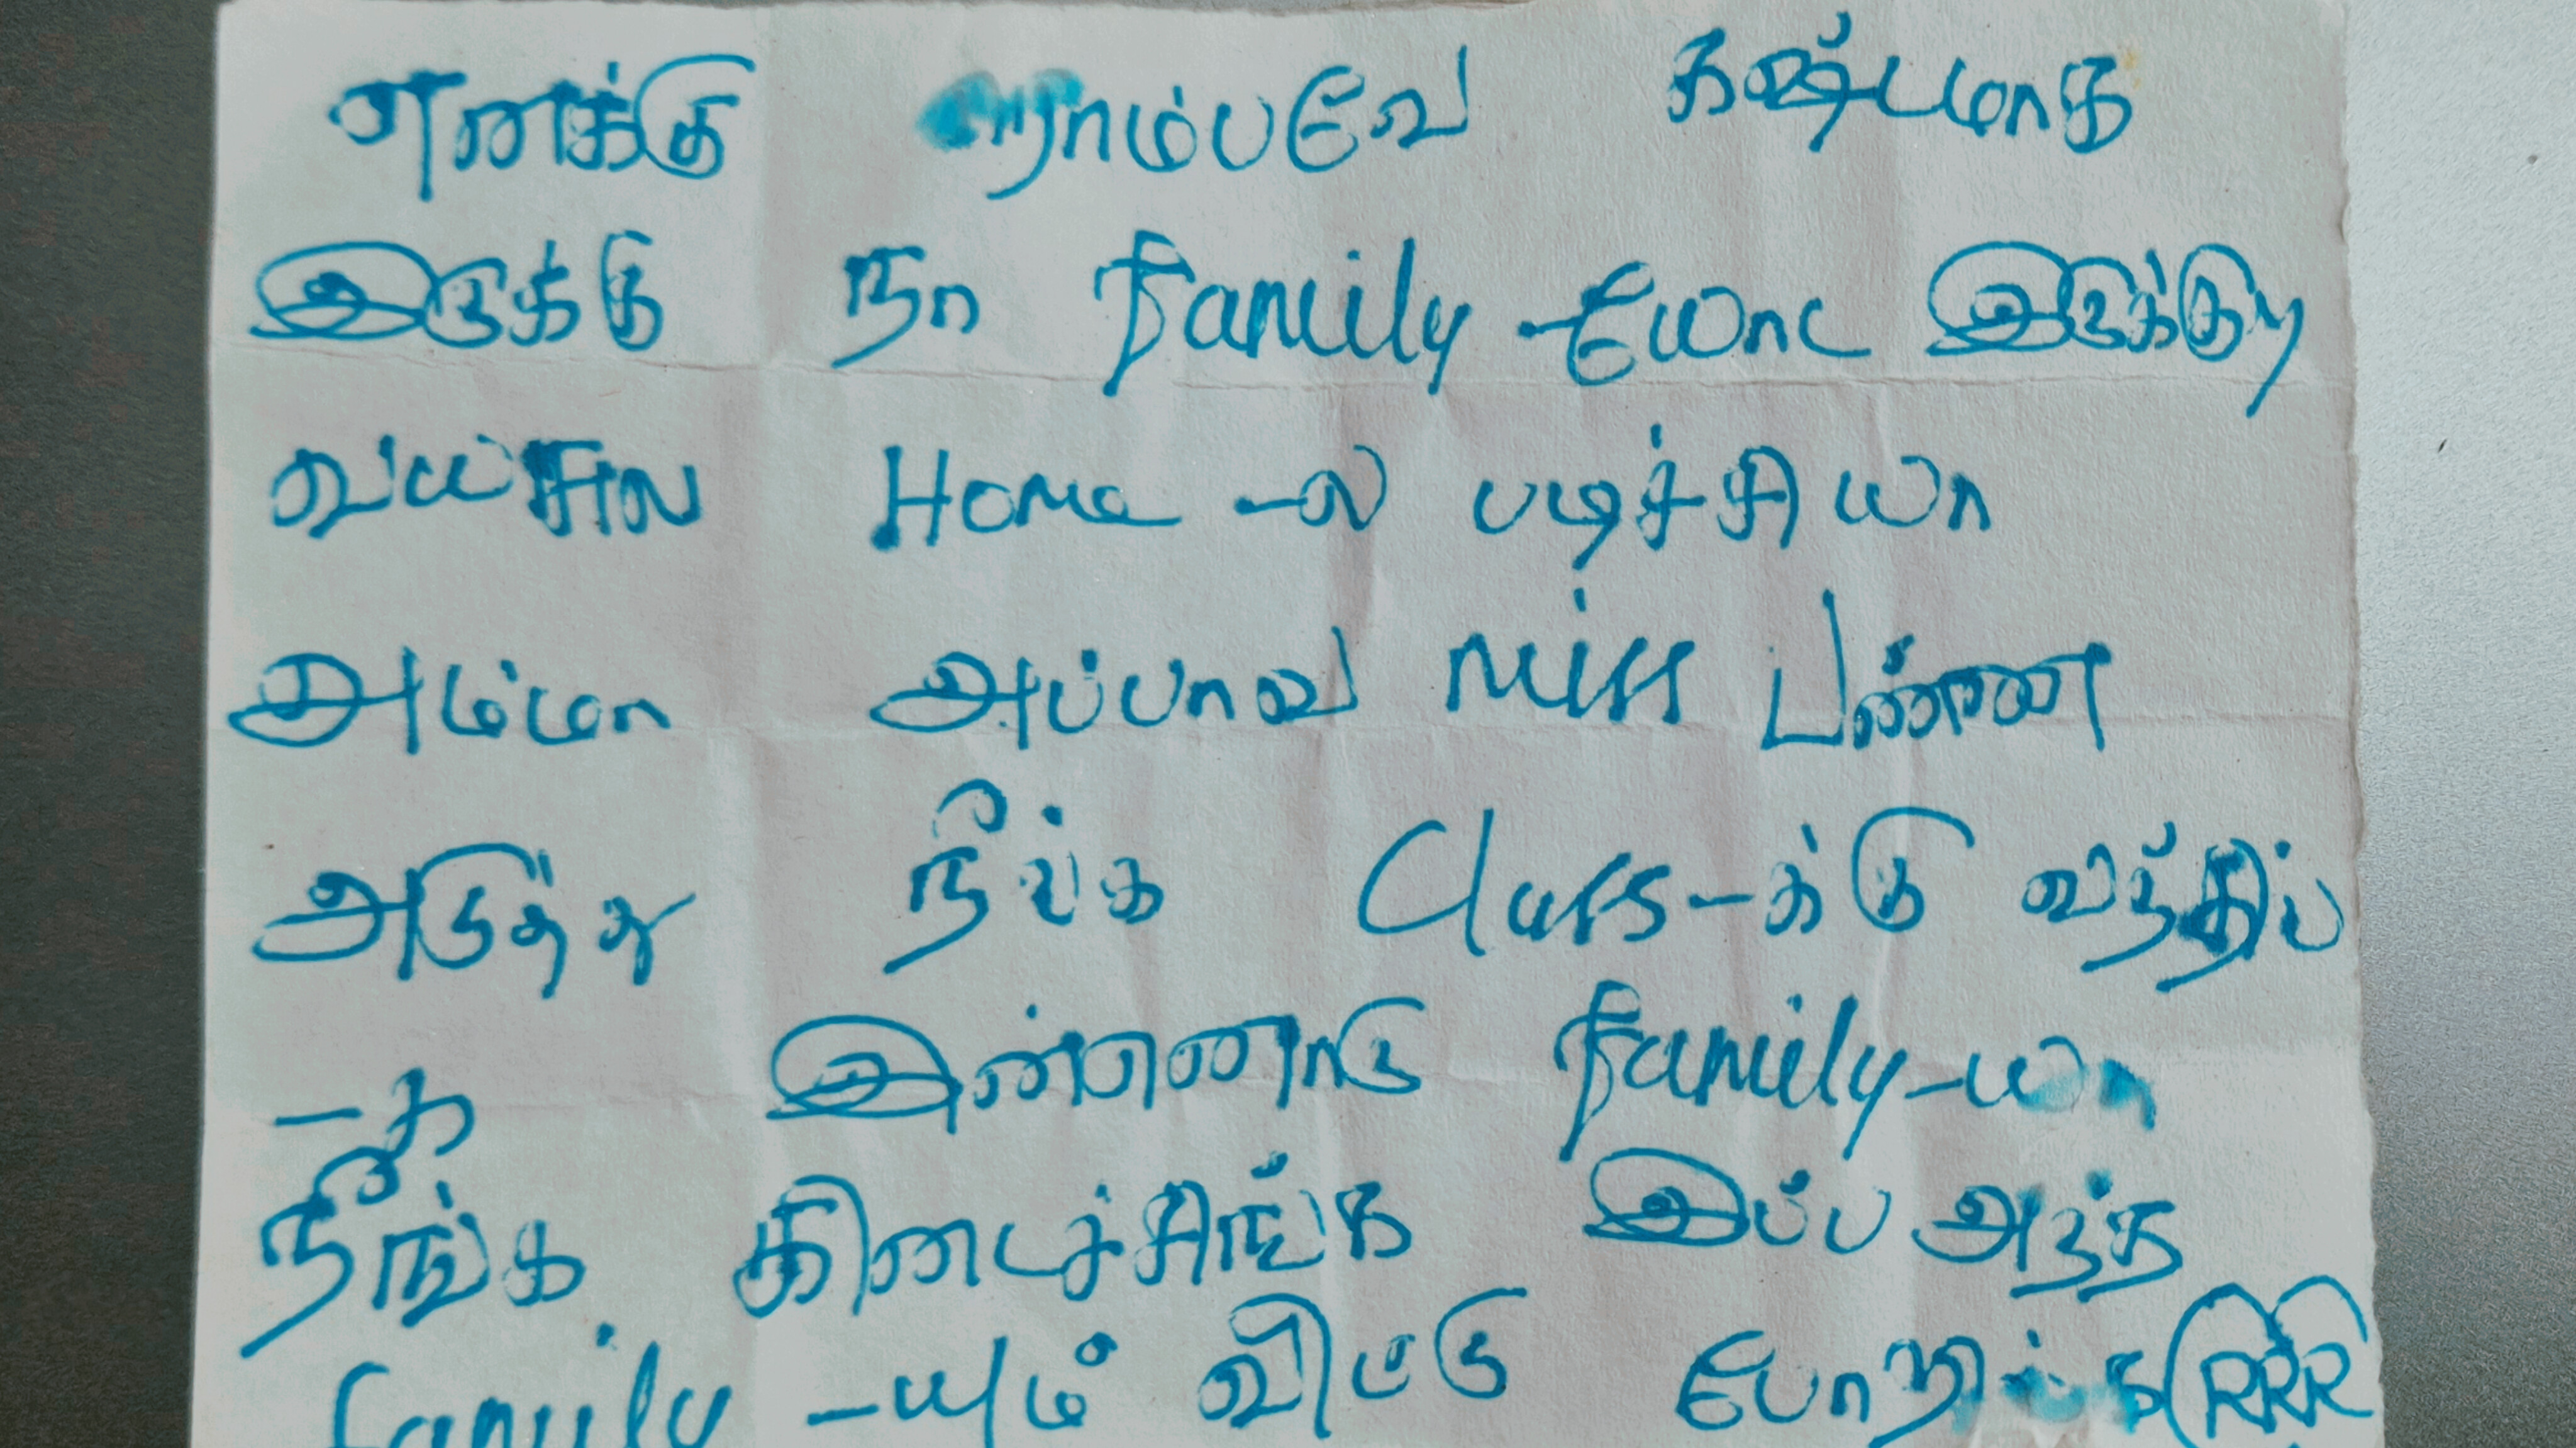 எனக்கு ரொம்பவே கஷ்டமாக
இருக்கு நா family -யோட இருக்குற
வயசுல Home -ல படிச்சியா
அம்மா அப்பாவ miss பண்ண
அடுத்து நீங்க Class-க்கு வந்திப்
-க இன்னொரு family-யா
நீங்க கிடைச்சிங்க இப்ப அந்த
family -யும் விட்டு போறிங்க RRR